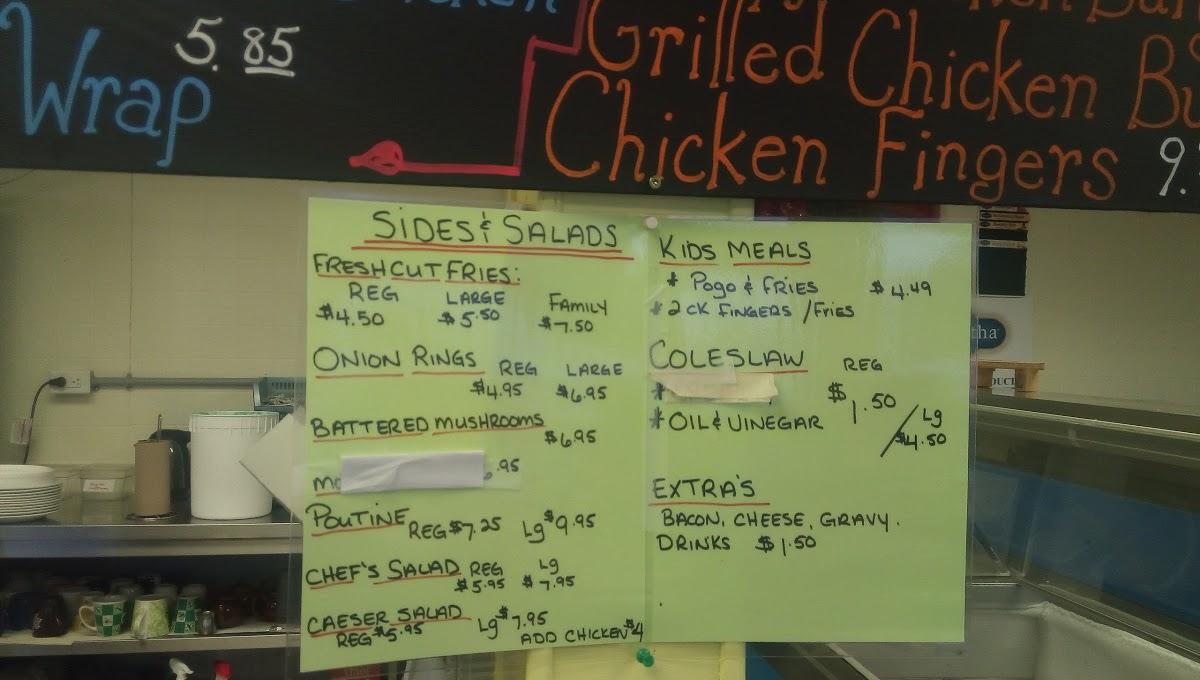 5.85
Wrap
Grilled Chicken
Chicken Fingers 9.
SIDES & SALADS
FRESHCUT FRIES:
REG LARGE FAMILY
$4.50 $5.50 $7.50
ONION RINGS REG LARGE
$4.95 $6.95
BATTERED MUSHROOMS
$6.95
.95
POUTINE REG $7.25 Lg $9.95
CHEF'S SALAD REG Lg
$5.95 $7.95
CAESER SALAD Lg $7.95
REG $5.95 ADD CHICKEN $4
KIDS MEALS
* POGO & FRIES $4.49
* 2 CK FINGERS / FRIES
COLESLAW REG
*
* OIL & VINEGAR $1.50 / Lg
$4.50
EXTRA'S
BACON, CHEESE, GRAVY.
DRINKS $1.50